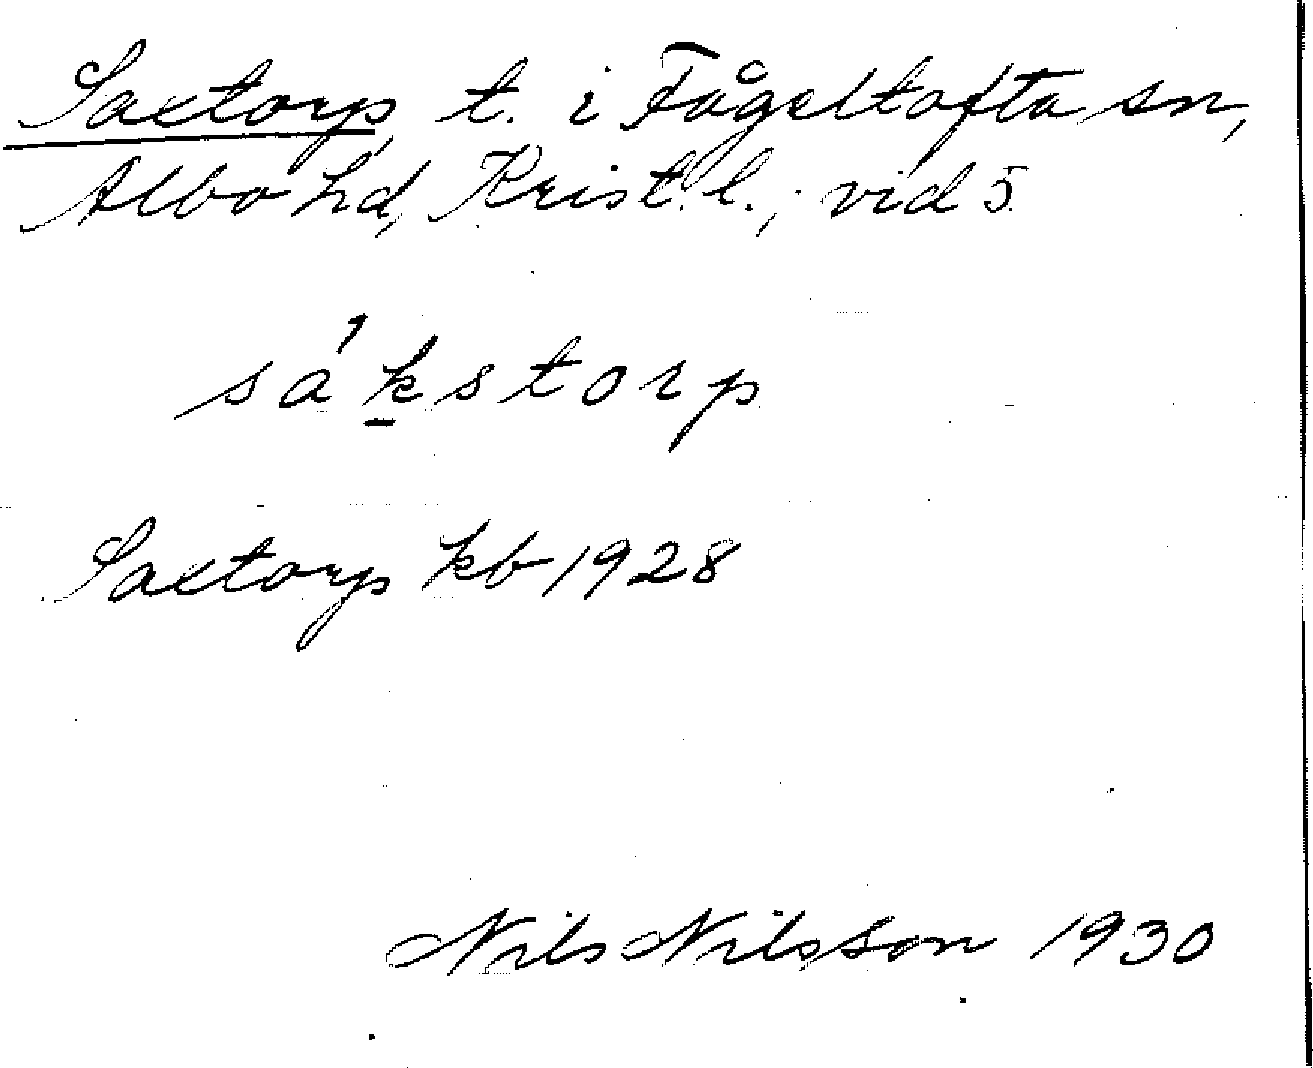 Saxtorp t. i Fågeltofta sn,
Albo hd, Krist. l.; vid 5.
sákstorp
Saxtorp kb 1928
Nils Nilsson 1930